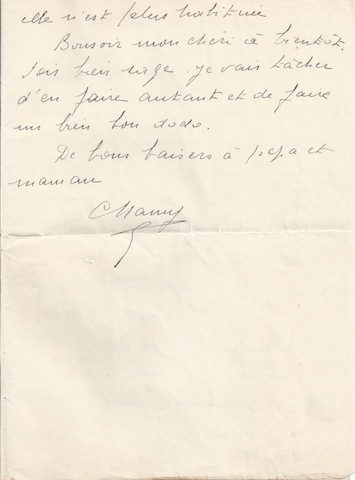 elle n'est plus habituée
Bonsoir mon chéri à bientôt.
Sois bien sage je vais tâcher
d'en faire autant et de faire
un bien bon dodo.
De bons baisers à papa et
maman
Mamy